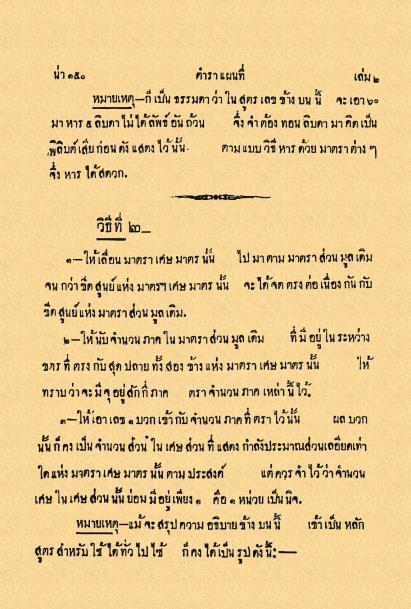 น่า ๑๕๐ ตำราแผนที่ เล่ม ๒
หมายเหตุ—ก็เป็นธรรมดาว่า ในสูตรเลขข้างบนนี้ จะเอา ๖๐
มาหาร ๕ ลิบดาไม่ได้ลัพธ์อันถ้วน จึ่งจำต้องทอนลิบดามาคิดเป็น
พิลิบต์เสียก่อนดังแสดงไว้นั้น ตามแบบวิธีหารด้วยมาตราต่าง ๆ
จึ่งหารได้สดวก.
วิธีที่ ๒_
๑—ให้เลื่อนมาตราเศษมาตรนั้น ไปมาตามมาตราส่วนมูลเดิม
จนกว่าขีดสูนย์แห่งมาตราเศษมาตรนั้น จะได้จดตรงต่อเนื่องกันกับ
ขีดสูนย์แห่งมาตราส่วนมูลเดิม.
๒—ให้นับจำนวนภาคในมาตราส่วนมูลเดิม ที่มีอยู่ในระหว่าง
ขีดที่ตรงกับสุดปลายทั้งสองข้างแห่งมาตราเศษมาตรนั้น ให้
ทราบว่าจะมีจุอยู่สักกี่ภาค ตราจำนวนภาคเหล่านี้ไว้.
๓—ให้เอาเลข ๑ บวกเข้ากับจำนวนภาคที่ตราไว้นั้น ผลบวก
นั้นก็คงเป็นจำนวนส่วนในเศษส่วนที่แสดงกำลังประมาณส่วนเลอียดเท่า
ใดแห่งมาตราเศษมาตรนั้นตามประสงค์ แต่ควรจำไว้ว่าจำนวน
เศษในเศษส่วนนั้นย่อมมีอยู่เพียง ๑ คือ ๑ หน่วยเป็นนิจ.
หมายเหตุ—แม้จะสรุปความอธิบายข้างบนนี้ เข้าเป็นหลัก
สูตรสำหรับใช้ได้ทั่วไปไซ้ ก็คงได้เป็นรูปดังนี้:—